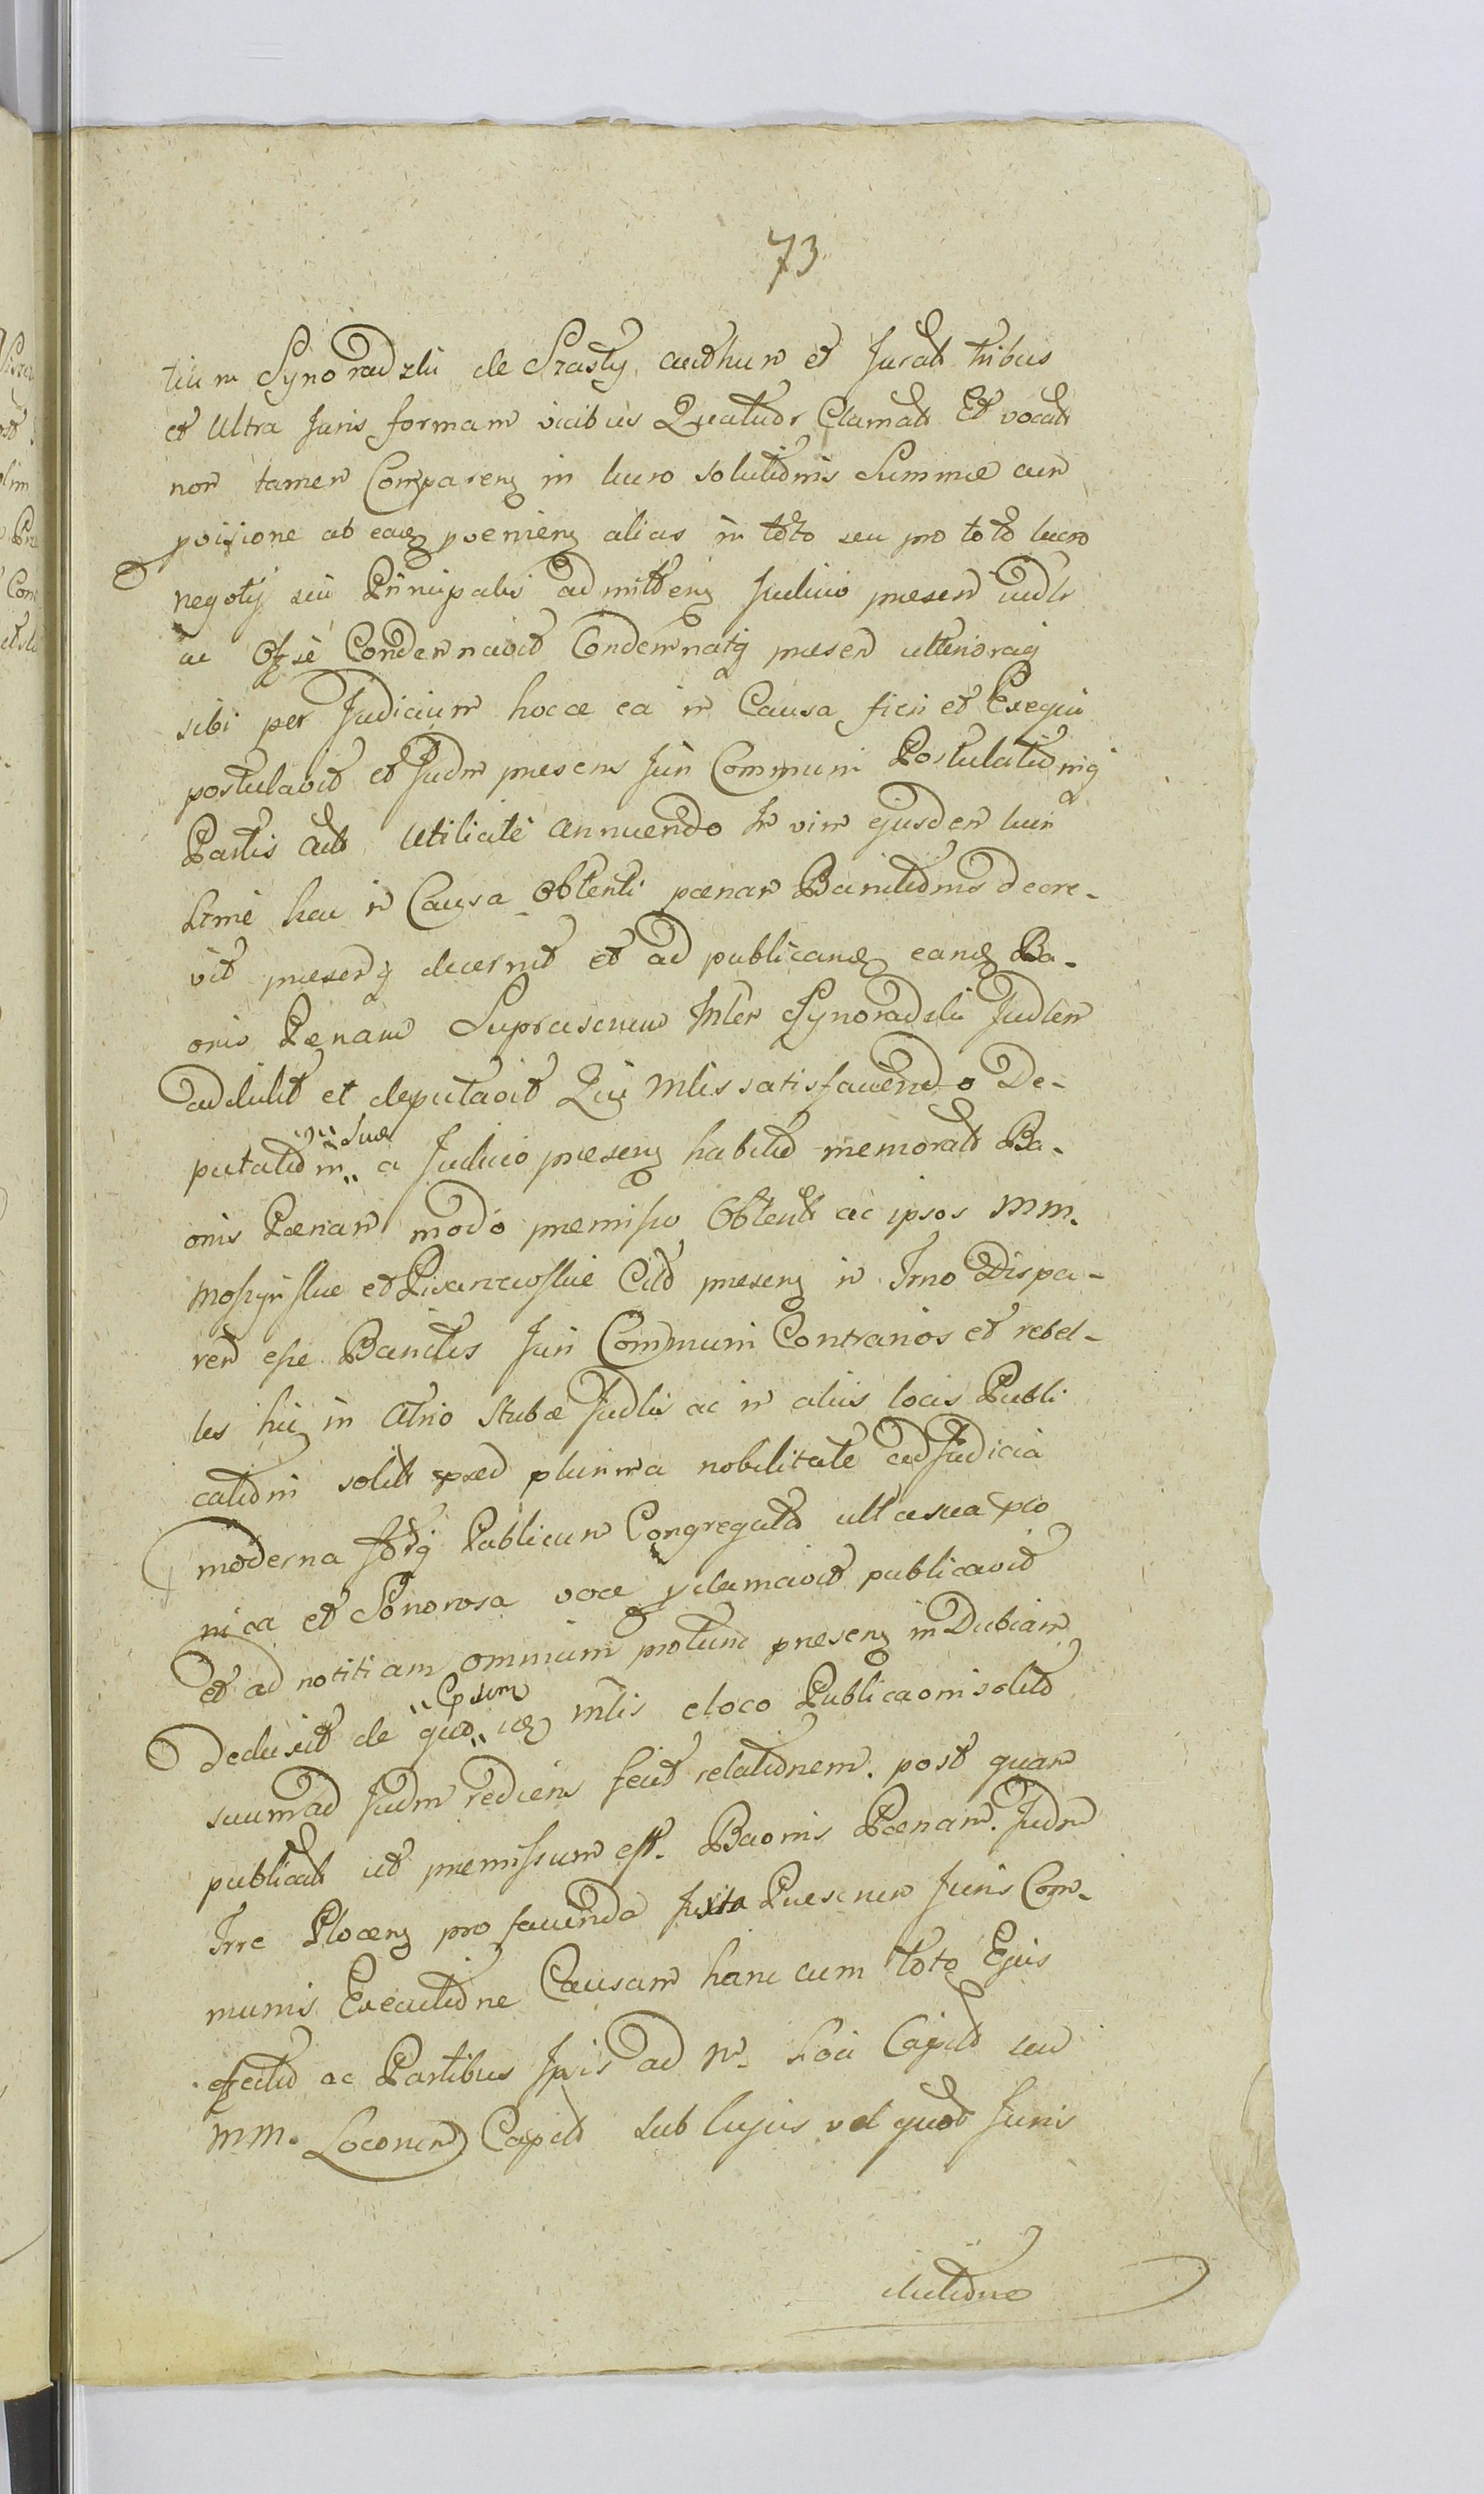 73
tium Synoradzki de Szasty authum et Jurat tribus
et Ultra Juris formam vicibus Quatuor Clamat Et vocat
non tamen Comparens in lucro solutionis Summae cum
pvisione ab eaq pveniens alias in toto seu pro toto lucro
negotij seu Principalis admittens Judicio presen judlr
ac Offse Condemnavit Condemnatq presen ulterioraq
sibi per Judicium hocce ea in Causa fieri et Exequi
postulavit et Judm presens Juri Communi Postulationiq
Partis Act Utilicite annuendo In vim ejusdem lucri
hac in Causa Obtenti paenam Banitionis decre-
vit presenq decernit et ad publicand eand Ba-
onis Paenam Suprascrium Mlem Synoradzki Judlem
addidit et deputavit Qui Mlis satisfaciendo De-
putationi suae a Judicio presens habito memorato Ba-
onis Paenam modo premisso Obtent ac ipsos MM.
Moszynskie et Pisanzewskie Citt presens in Trno Dispa-
ren esse Banitos Juri Communi Contrarios et rebel-
les hic in Atrio Stubae Judlis ac in aliis locis Publi
cationi solit pred plurima nobilitate ad Judicia
moderna fforq Publicum Congregato alta sua pro
nica et Sonorosa voce pclamavit publicavit
et ad notitiam omnium protunc presens inDubiam
Deduxit de quo Ipsum idq mlis eloco Publicaoni solito
suum ad Judm rediens fecit relationem. post quam
publicat ut premissum est. Baonis Paenam. Judm
Trre Plocens pro facienda Juxta Prescrium Juris Com-
munis Executione Causam hanc cum toto Ejus
effectu ac Partibus Ipsis ad M. Loci Capit seu
MM. Locoten Capit sub lujus vel quod Juris
lutione